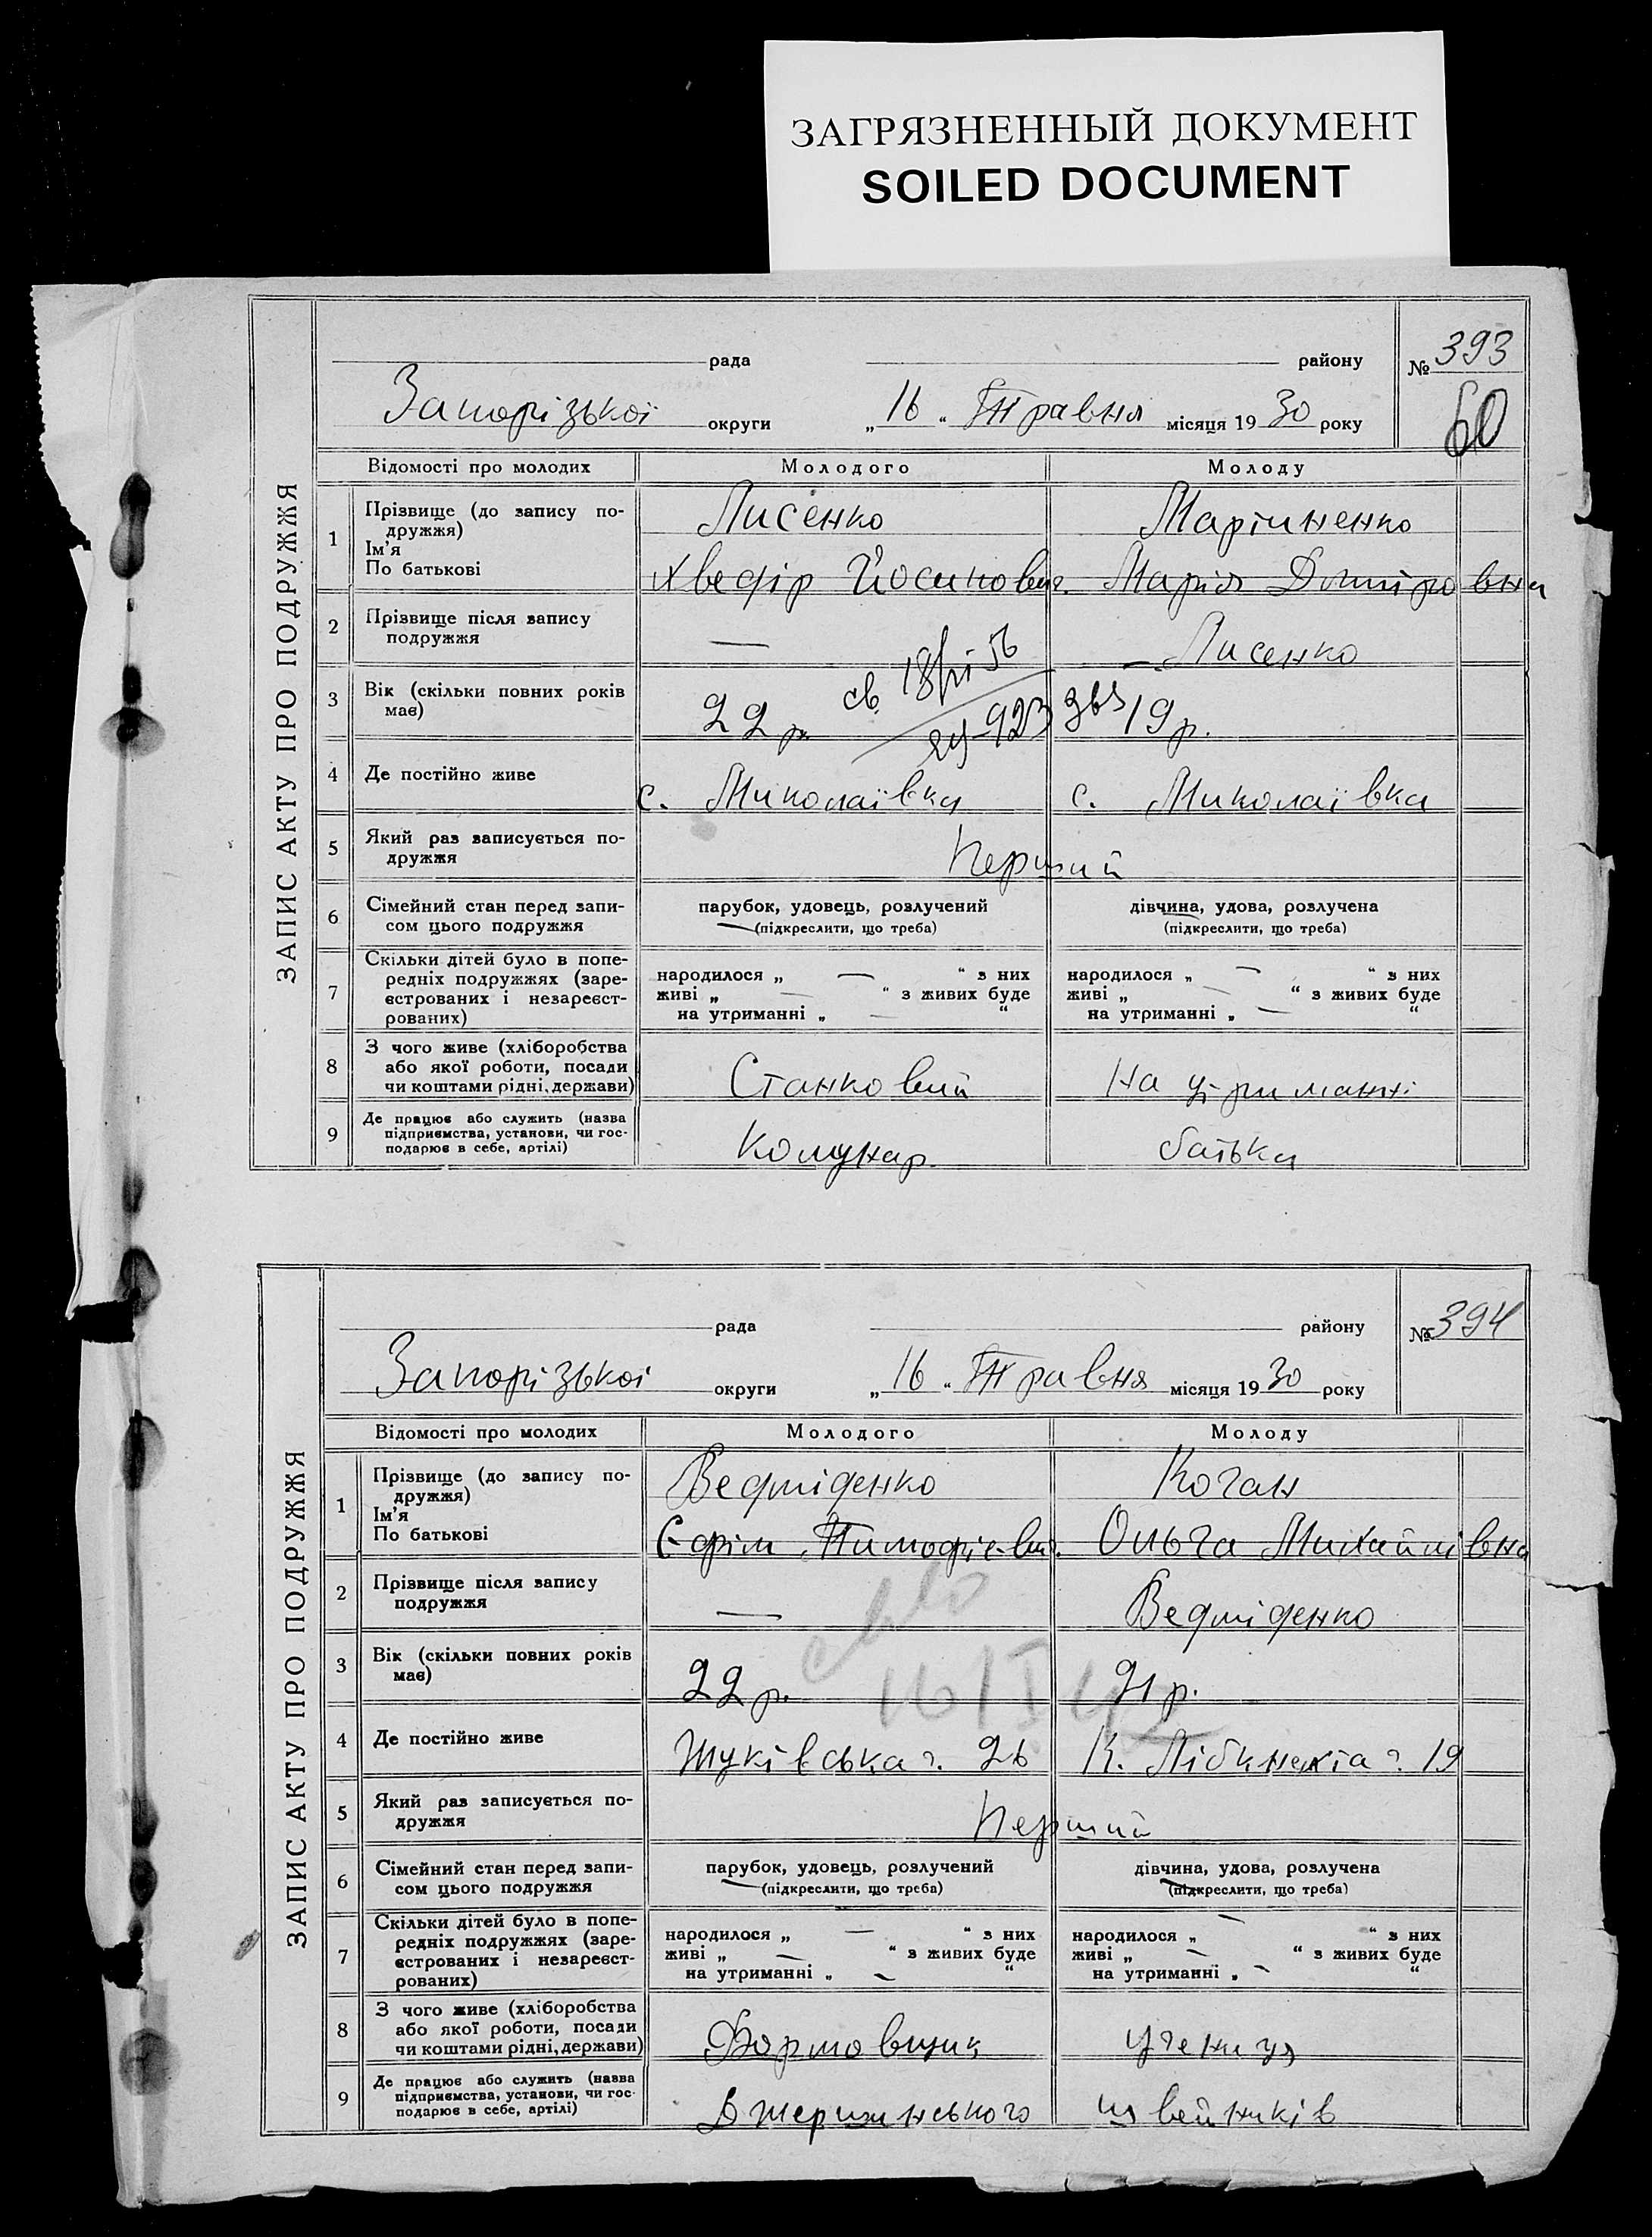 ЗАГРЯЗНЕННЫЙ ДОКУМЕНТ
SOILED DOCUMENT
ЗАПИС АКТУ ПРО ПОДРУЖЖЯ
рада району № 393
Запорізької округи „16“ Травня місяця 1930 року
60
Відомості про молодих Молодого Молоду
1 Прізвище (до запису по-
дружжя)
Ім'я
По батькові
Лисенко Мартиненко
Хведір Йосипович. Марія Дмитровна
2 Прізвище після запису
подружжя
— Лисенко
3 Вік (скільки повних років
має)
22 р. 19 р.
св. 18/VI-56
4 Де постійно живе с. Миколаївка с. Миколаївка
5 Який раз записується по-
дружжя
Перший
6 Сімейний стан перед запи-
сом цього подружжя
парубок, удовець, розлучений дівчина, удова, розлучена
(підкреслити, що треба) (підкреслити, що треба)
7 Скільки дітей було в попе-
редніх подружжях (заре-
єстрованих і незареєст-
рованих)
народилося „ — “ з них народилося „ — “ з них
живі „ — “ з живих буде живі „ — “ з живих буде
на утриманні „ — “ на утриманні „ — “
8 З чого живе (хліборобства
або якої роботи, посади
чи коштами рідні, держави)
Станковий На утриманні
9 Де працює або служить (назва
підприємства, установи, чи гос-
подарює в себе, артілі)
Комунар. батька
ЗАПИС АКТУ ПРО ПОДРУЖЖЯ
рада району № 394
Запорізької округи „16“ Травня місяця 1930 року
Відомості про молодих Молодого Молоду
1 Прізвище (до запису по-
дружжя)
Ім'я
По батькові
Ведміденко Коган
Єфім Тимофієвич. Ольга Михайлівна
2 Прізвище після запису
подружжя
— Ведміденко
3 Вік (скільки повних років
має)
22 р. 21 р.
4 Де постійно живе Жуківська ч. 26 К. Лібкнехта ч. 19
5 Який раз записується по-
дружжя
Перший
6 Сімейний стан перед запи-
сом цього подружжя
парубок, удовець, розлучений дівчина, удова, розлучена
(підкреслити, що треба) (підкреслити, що треба)
7 Скільки дітей було в попе-
редніх подружжях (заре-
єстрованих і незареєст-
рованих)
народилося „ — “ з них народилося „ — “ з них
живі „ — “ з живих буде живі „ — “ з живих буде
на утриманні „ — “ на утриманні „ — “
8 З чого живе (хліборобства
або якої роботи, посади
чи коштами рідні, держави)
Формовщик учениця
9 Де працює або служить (назва
підприємства, установи, чи гос-
подарює в себе, артілі)
Джержинського швейників